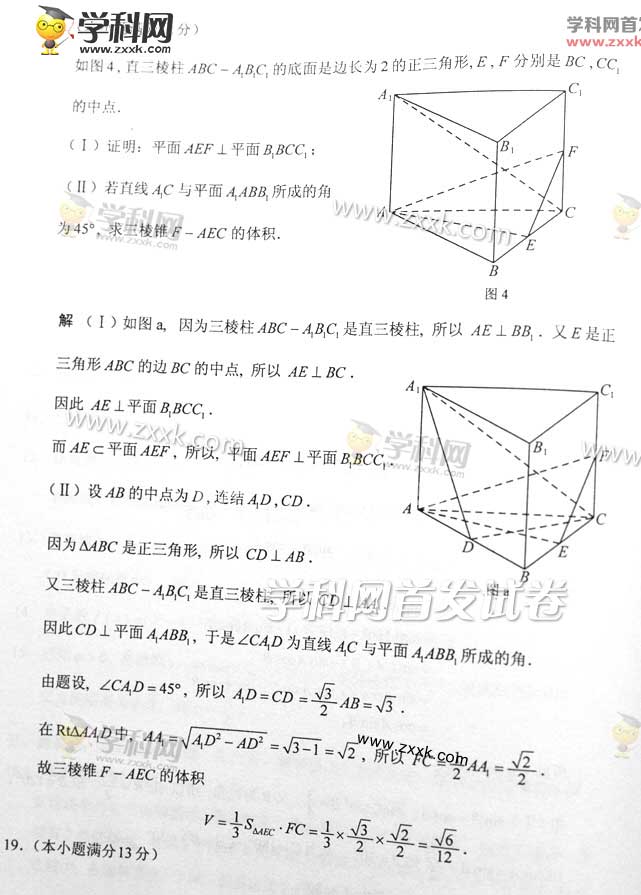 学科网
www.zxxk.com
分）
学科网首发
www.zxxk
如图4, 直三棱柱 ABC − A₁B₁C₁ 的底面是边长为 2 的正三角形, E, F 分别是 BC, CC₁
的中点.
（Ⅰ）证明：平面 AEF ⊥ 平面 B₁BCC₁；
（Ⅱ）若直线 A₁C 与平面 A₁ABB₁ 所成的角
为 45°, 求三棱锥 F − AEC 的体积.
A₁
C₁
B₁
F
A
C
E
B
图 4
学科网
www.zxxk.com
解 （Ⅰ）如图 a, 因为三棱柱 ABC − A₁B₁C₁ 是直三棱柱, 所以 AE ⊥ BB₁. 又 E 是正
三角形 ABC 的边 BC 的中点, 所以 AE ⊥ BC.
因此 AE ⊥ 平面 B₁BCC₁.
而 AE ⊂ 平面 AEF, 所以, 平面 AEF ⊥ 平面 B₁BCC₁.
（Ⅱ）设 AB 的中点为 D, 连结 A₁D, CD.
因为 ΔABC 是正三角形, 所以 CD ⊥ AB.
又三棱柱 ABC − A₁B₁C₁ 是直三棱柱, 所以 CD ⊥ AA₁.
因此 CD ⊥ 平面 A₁ABB₁, 于是 ∠CA₁D 为直线 A₁C 与平面 A₁ABB₁ 所成的角.
A₁
C₁
B₁
A
C
D
E
B
图 a
www.zxxk.com
学科网
学科网首发试卷
由题设, ∠CA₁D = 45°, 所以 A₁D = CD = √3/2 AB = √3.
在 RtΔAA₁D 中, AA₁ = √(A₁D² − AD²) = √(3−1) = √2, 所以 FC = 1/2 AA₁ = √2/2.
故三棱锥 F − AEC 的体积
V = 1/3 S_ΔAEC · FC = 1/3 × √3/2 × √2/2 = √6/12.
www.zxxk.com
19.（本小题满分 13 分）